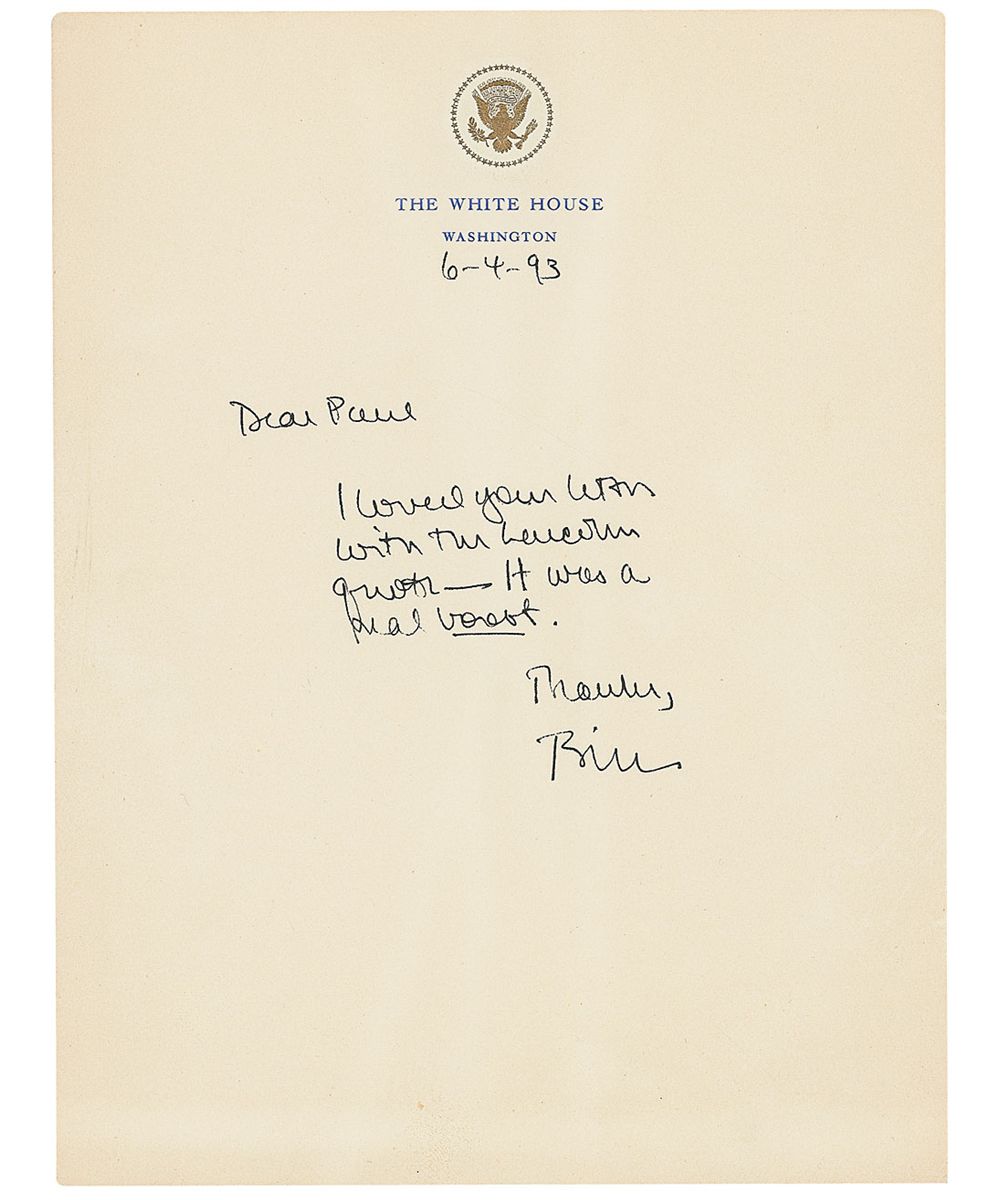 THE WHITE HOUSE
WASHINGTON
6-4-93
Dear Paul
I loved your letter
with the Lincoln
quote — It was a
real boost.
Thanks,
Bill